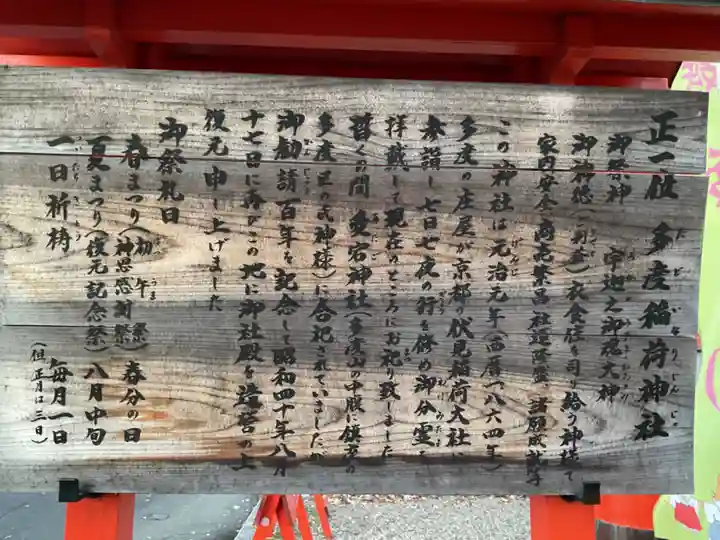 正一位 多度稲荷神社
御祭神 宇迦之御魂大神
御神徳(利益)衣食住を司り給う神様で
家内安全 商売繁昌 社運隆盛 諸願成就等
この神社は元治元年(西暦一八六四年)
多度の庄屋が京都の伏見稲荷大社に
参詣し七日七夜の行を修め御分霊を
拝戴して現在のところにお祀り致しました
暫くの間 愛宕神社(多度山の中腹に鎮座の
多度区の氏神様)に合祀されていましたが
御勧請百年を記念して昭和四十年八月
十七日に再びこの地に御社殿を造営の上
復元申し上げました
御祭礼日
春まつり(初午祭 神恩感謝祭) 春分の日
夏まつり(復元記念祭)八月中旬
一日祈祷 毎月一日
(但 正月は三日)